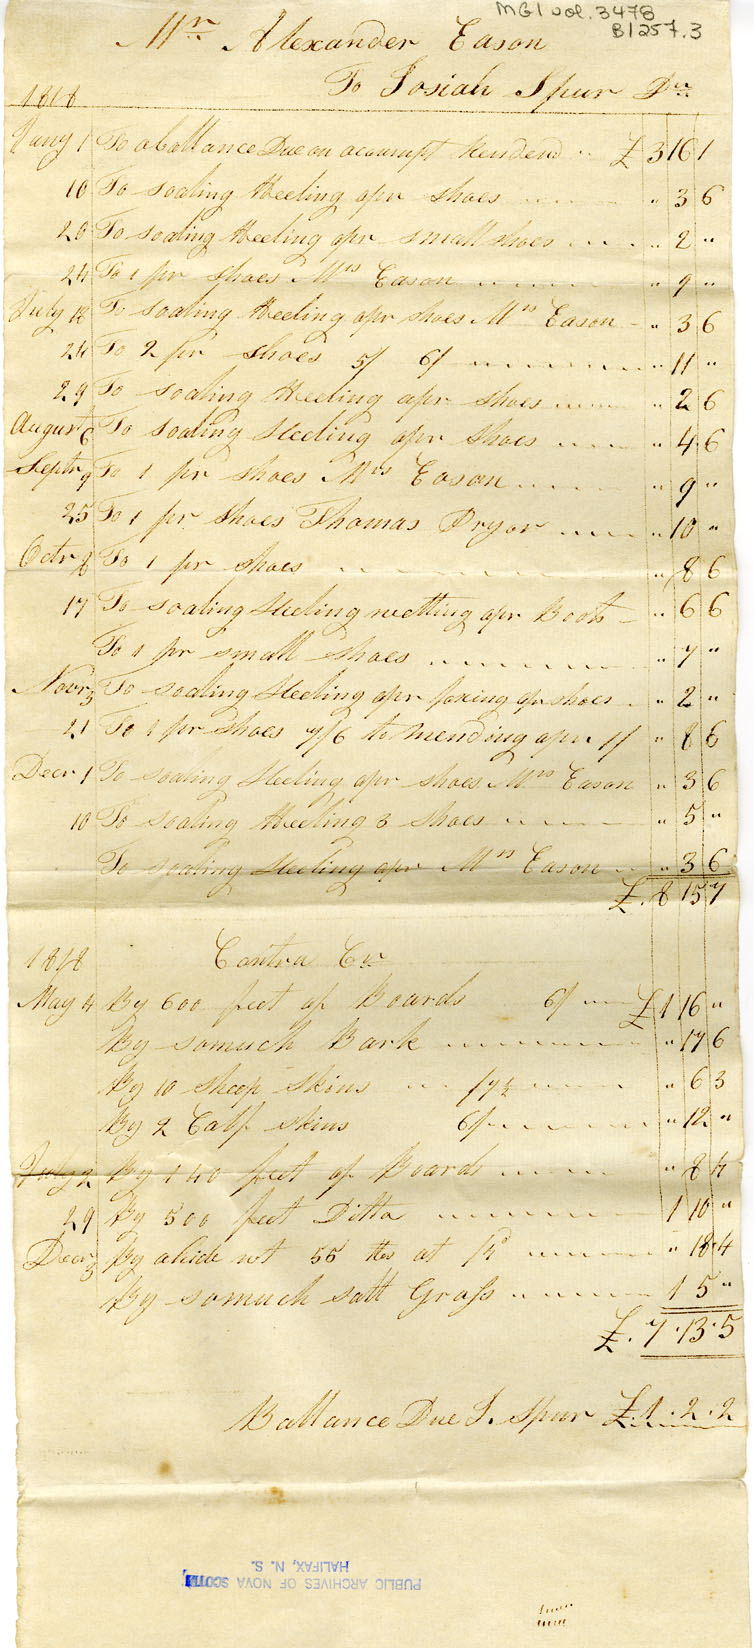 MG1 vol. 3478
B1257.3
Mr. Alexander Eason
To Josiah Spur Dr
1818
Jany 1 To a ballance Due on accoumpt Rendend £ 3 16 1
10 To soaling Heeling apr shoes " 3 6
20 To soaling Heeling apr small shoes " 2 "
24 To 1 pr shoes Mrs Eason " 9 "
July 12 To soaling Heeling apr shoes Mrs Eason " 3 6
24 To 2 pr shoes 5/ 6/ " 11 "
29 To soaling Heeling apr shoes " 2 6
August 6 To soaling Heeling apr shoes " 4 6
Septr 9 To 1 pr shoes Mrs Eason " 9 "
25 To 1 pr shoes Thomas Pryor " 10 "
Octr 8 To 1 pr shoes " 8 6
17 To soaling Heeling welting apr Boots " 6 6
To 1 pr small shoes " 7 "
Novr 5 To soaling Heeling apr foxing apr shoes " 2 "
21 To 1 pr shoes 7/6 to mending apr 1/ " 8 6
Decr 1 To soaling Heeling apr shoes Mrs Eason " 3 6
10 To soaling Heeling 3 shoes " 5 "
To soaling Heeling apr Mrs Eason " 3 6
£. 8 15 7
1818 Contra Cr
May 4 By 600 feet of Boards 6/ £ 1 16 "
By somuch Bark " 17 6
By 10 sheep skins /7½ " 6 3
By 2 Calf skins 6/ " 12 "
July 2 By 140 feet of Boards " 8 4
29 By 500 feet Ditto 1 10 "
Decr 5 By ahide wt 55 lbs at /4d " 18 4
By somuch salt Grass 1 5 "
£. 7. 13. 5
Ballance Due J. Spur £. 1. 2. 2
PUBLIC ARCHIVES OF NOVA SCOTIA
HALIFAX, N. S.